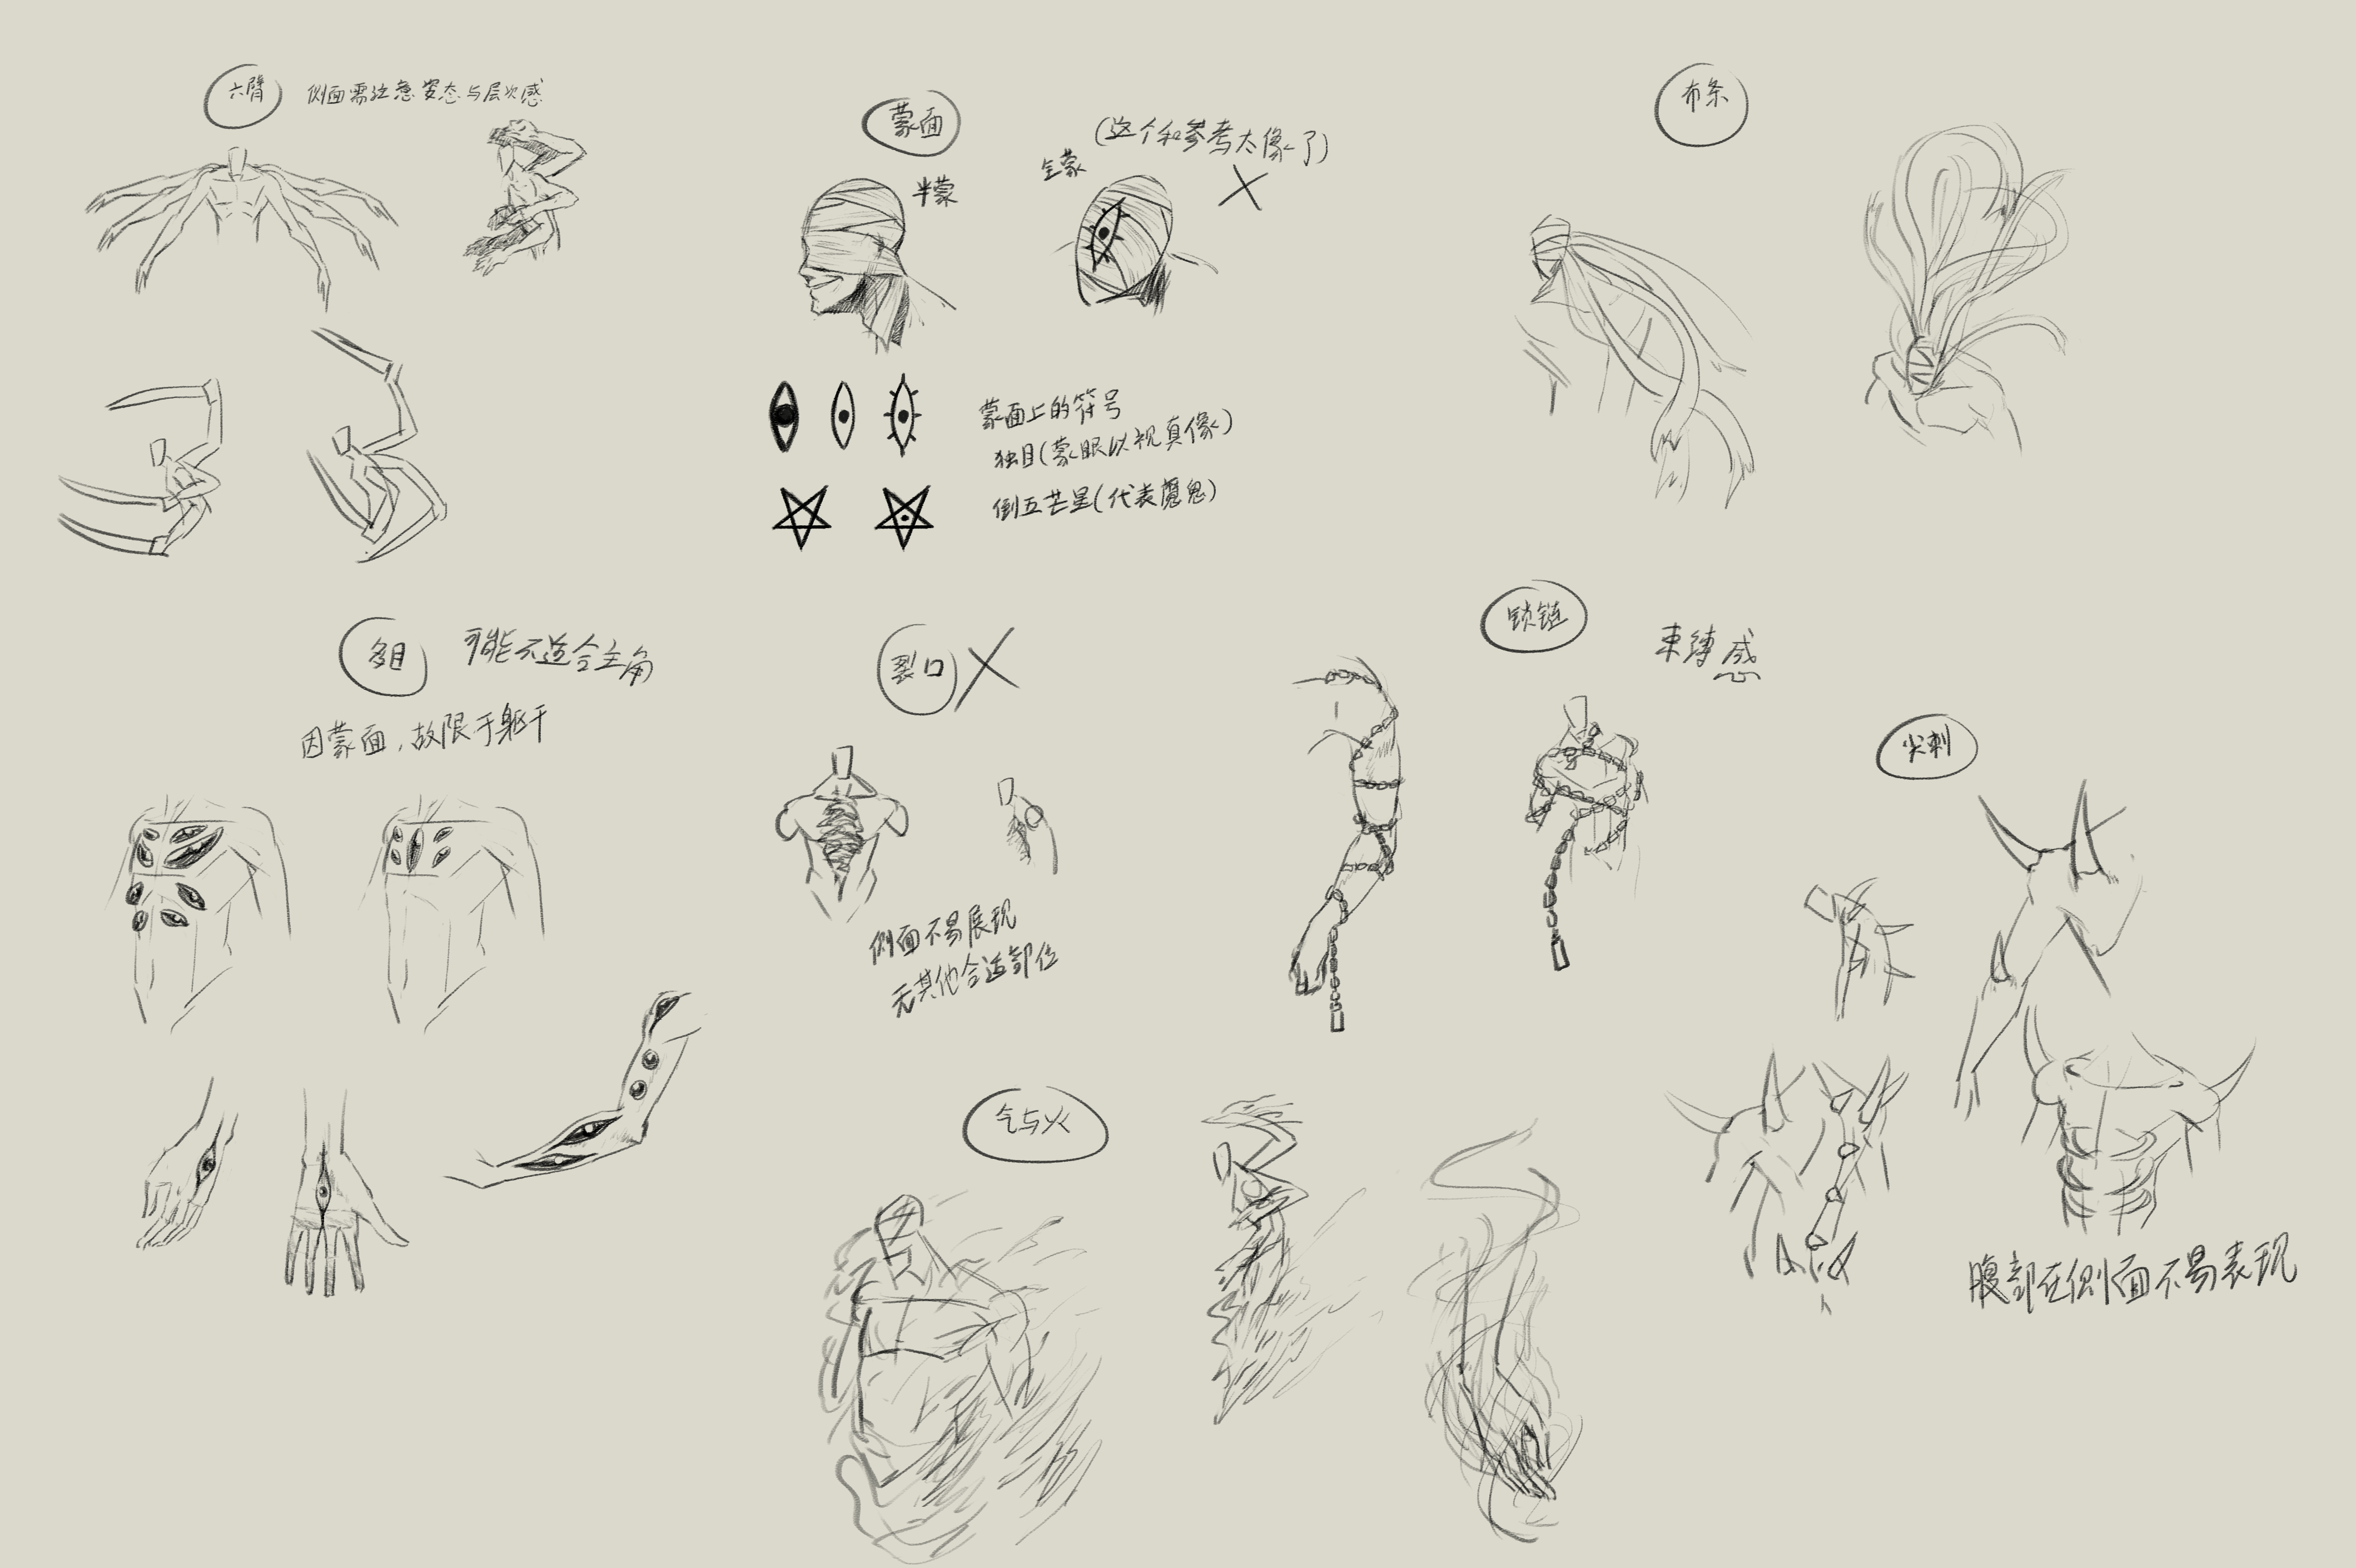 六臂
侧面需注意姿态与层次感
蒙面
半蒙
全蒙
(这个和参考太像了)
蒙面上的符号
独目(蒙眼以视真像)
倒五芒星(代表魔鬼)
布条
多目
可能不适合主角
因蒙面,故限于躯干
裂口
侧面不易展现
无其他合适部位
锁链
束缚感
尖刺
腹部在侧面不易表现
气与火